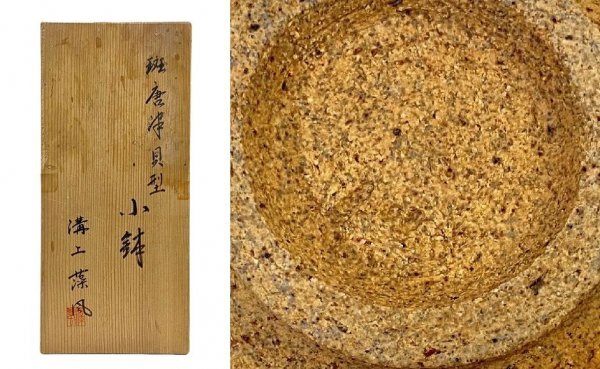 斑唐津貝型
小鉢
溝上藻風